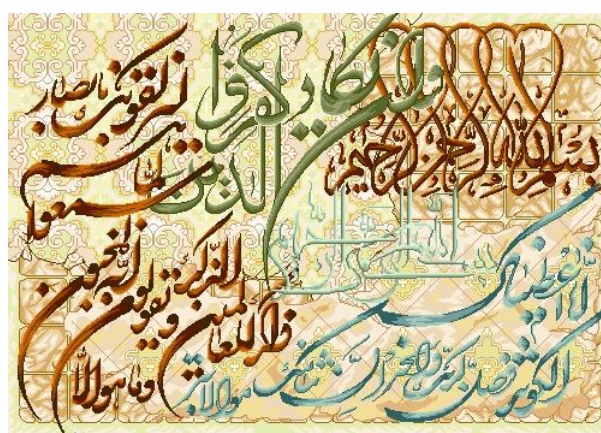 بسم الله الرحمن الرحيم
وان يكاد
الذين كفروا
ليزلقونك بابصارهم
لما سمعوا
الذكر ويقولون انه لمجنون
وما هو الا ذكر للعالمين
انا اعطيناك
الكوثر فصل لربك وانحر ان شانئك هو الابتر